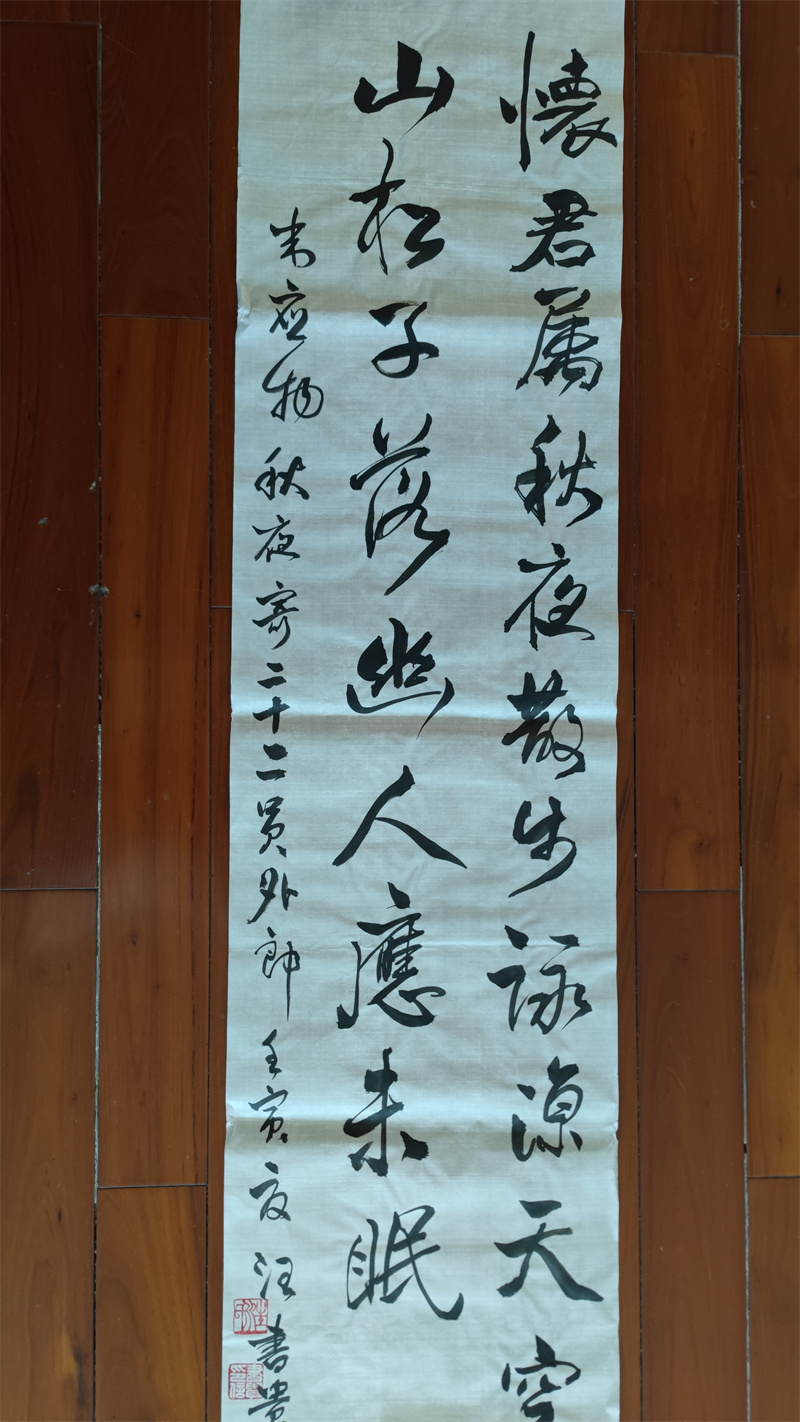 懷君屬秋夜散步詠涼天空
山松子落幽人應未眠
韦應物秋夜寄二十二員外郎壬寅夏汪書貴